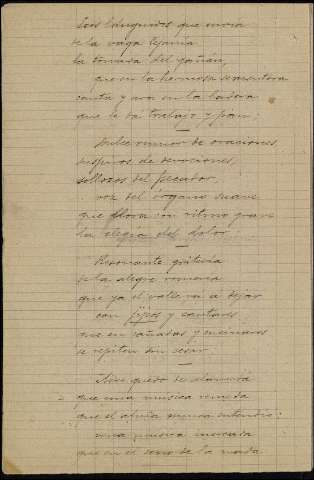 Sones lánguidos que envía
de la vaga lejanía
la tonada del gañán,
que en la hermosa sementera
canta y ara en la ladera
que le da trabajo y pan;
Dulce rumor de oraciones,
suspiros de devociones,
sollozos del pecador,
voz del órgano suave
que llora con ritmo grave
la elegía del dolor;
Resonante gritería
de la alegre romería
que ya el valle va a dejar
con jijos y cantares
que en cañadas y encinares
se repiten sin cesar
Aire quedo de alameda
que una música remeda
que el alma nunca entendió:
una música increada
que en el seno de la nada